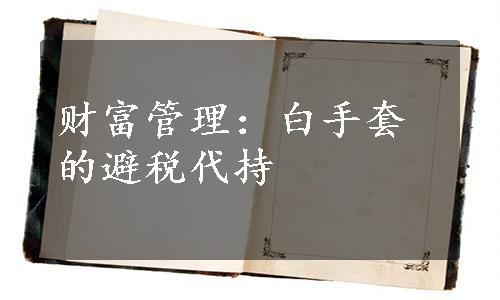 财富管理：白手套
的避税代持